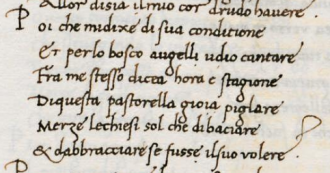 Allor disia il mio cor drudo havere
P oi che midixe di sua conditione
Et perlo bosco augelli udio cantare
Fra me stesso dicea hora e stagione
Diquesta pastorella gioia pigliare
Merze lechiesi sol che di baciare
& dabbracciare se fusse ilsuo volere